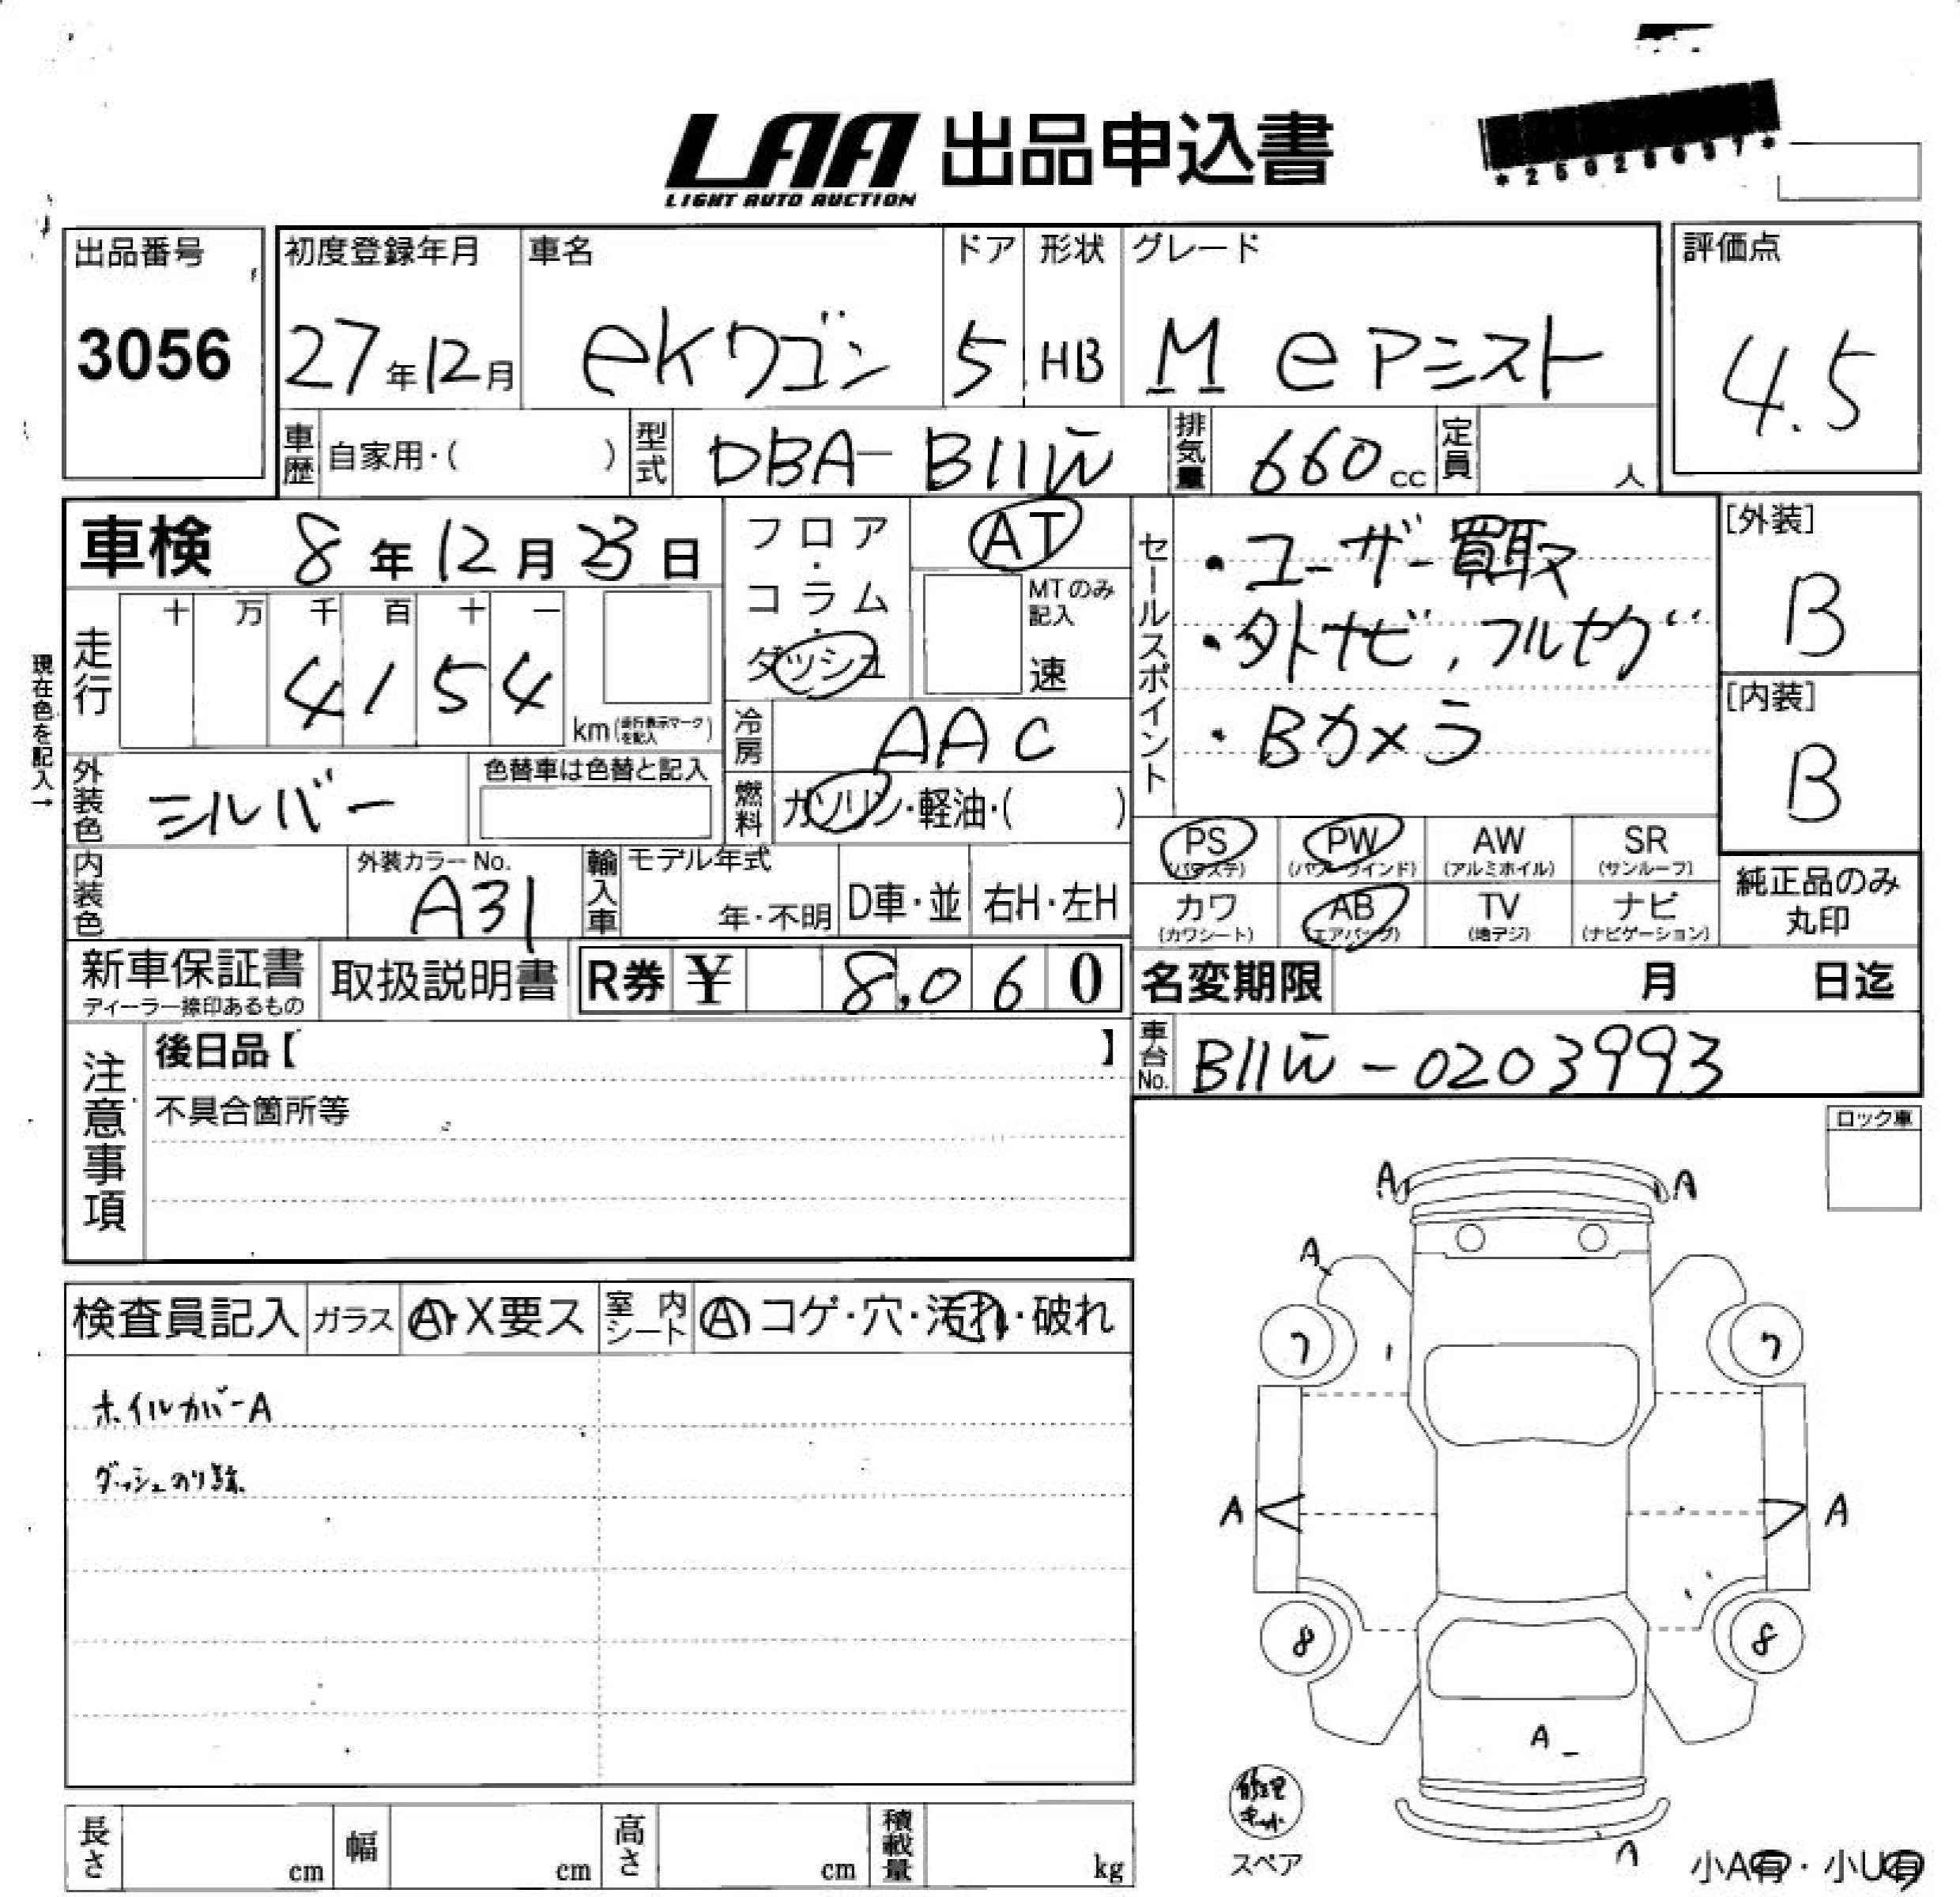 LAA 出品申込書
LIGHT AUTO AUCTION
出品番号
3056
初度登録年月
27年12月
車名
eKワゴン
ドア
5
形状
HB
グレード
M eアシスト
評価点
4.5
車歴
自家用・( )
型式
DBA-B11W
排気量
660cc
定員
人
車検 8年12月23日
現在色を記入→
走行
十 万 千 百 十 一
4 1 5 4
km(走行表示マークを記入)
フロア・コラム・ダッシュ
AT
MTのみ記入
速
冷房
AAC
燃料
ガソリン・軽油・( )
外装色
シルバー
色替車は色替と記入
内装色
外装カラーNo.
A31
輸入車
モデル年式
年・不明
D車・並
右H・左H
セールスポイント
・ユーザー買取
・外ナビ,フルセグ
・Bカメラ
[外装]
B
[内装]
B
PS
(パワステ)
PW
(パワーウインド)
AW
(アルミホイル)
SR
(サンルーフ)
カワ
(カワシート)
AB
(エアバッグ)
TV
(地デジ)
ナビ
(ナビゲーション)
純正品のみ
丸印
新車保証書
ディーラー捺印あるもの
取扱説明書
R券 ¥ 8,060
名変期限 月 日迄
車台No.
B11W-0203993
注意事項
後日品【 】
不具合箇所等
ロック車
検査員記入
ガラス
A・X要ス
室内シート
A コゲ・穴・汚れ・破れ
ホイルカバーA
ダッシュのり跡
A
A
A
7
7
A
A
8
8
A
A
修理キット
スペア
小A有・小U有
長さ cm
幅 cm
高さ cm
積載量 kg